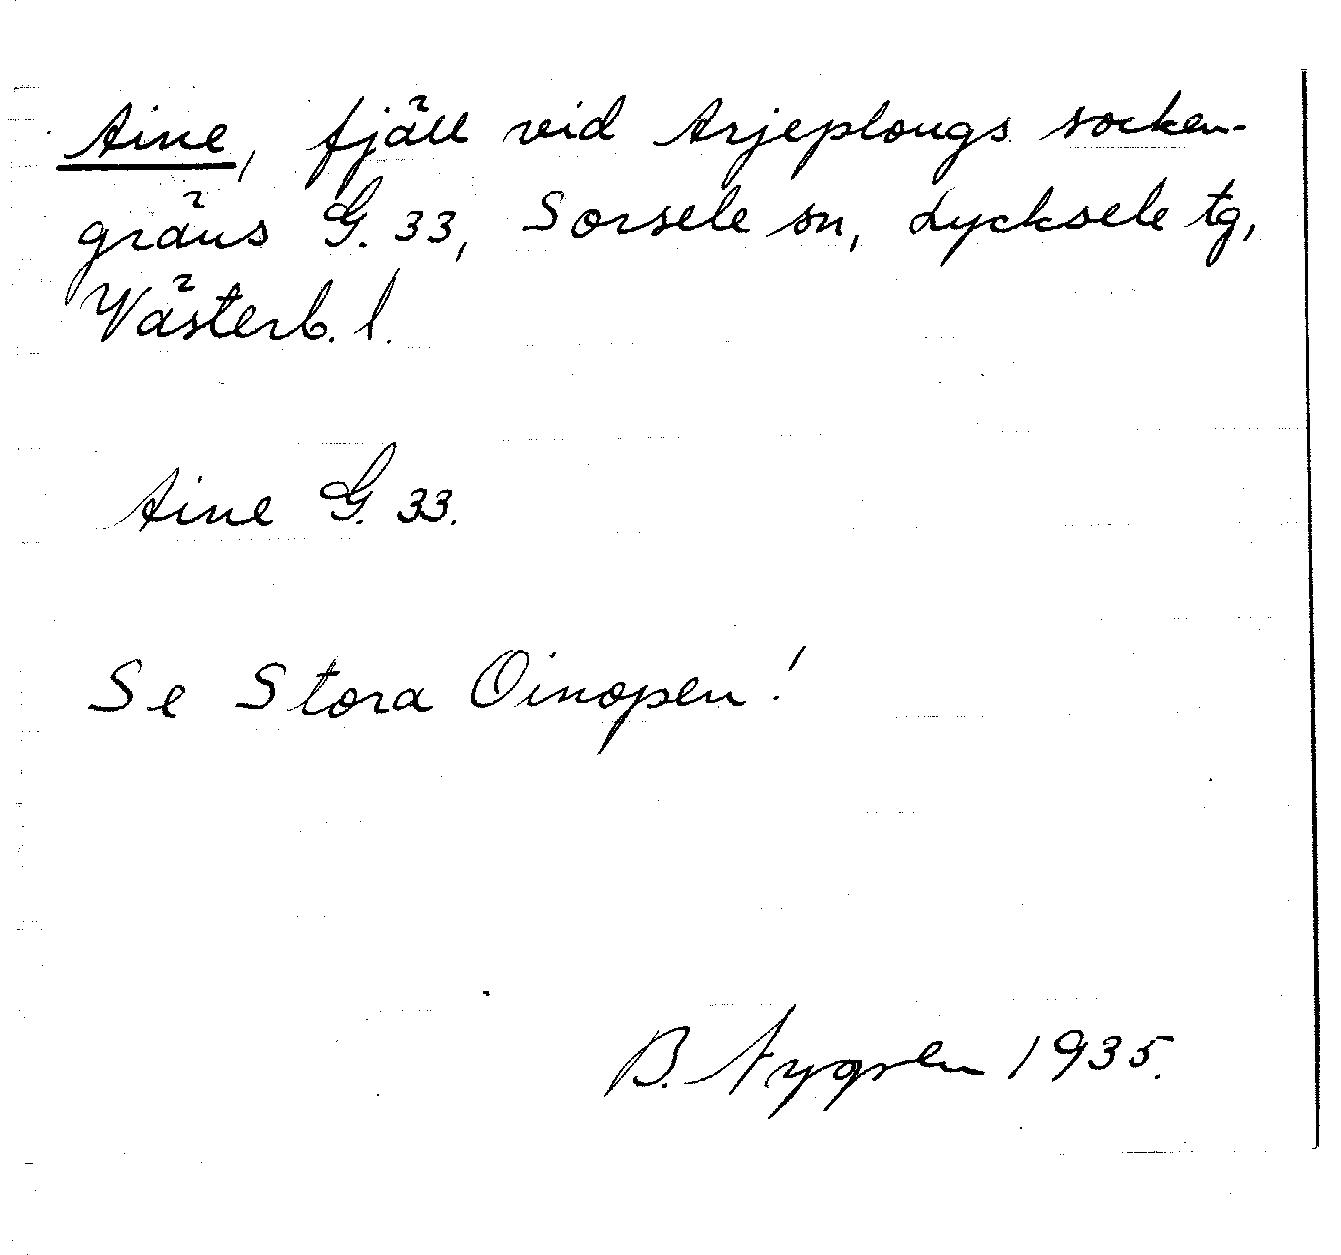 Aine, fjäll vid Arjeplougs socken-
gräns G. 33, Sorsele sn, Lycksele tg,
Västerb. l.
Aine G. 33.
Se Stora Oinopen!
B. 1935.